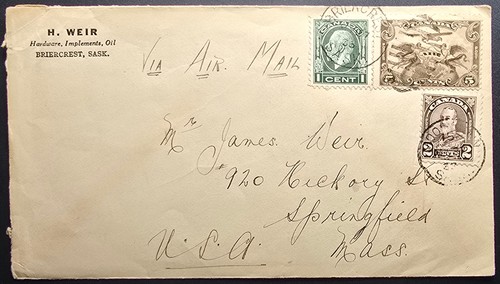 H. WEIR
Hardware, Implements, Oil
BRIERCREST, SASK.
Via Air Mail
CANADA
1 CENT 1
CANADA
5 5
CANADA
2 CENTS 2
Mr James Weir.
920 Hickory St
Springfield
Mass.
U.S.A.